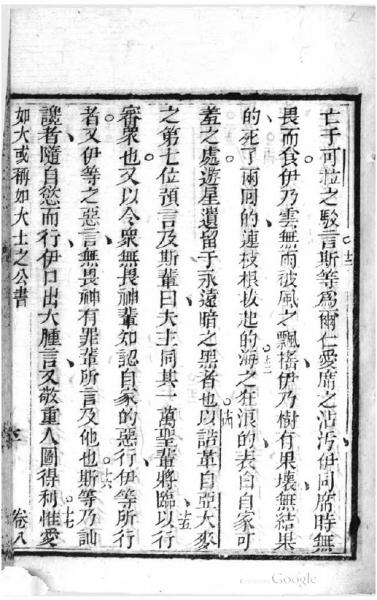 亡于可拉之駁言十二斯等為爾仁愛席之沾汚伊同席時無
畏而食伊乃雲無雨被風之飄搖伊乃樹有果壞無結果
的死了兩囘的連枝根拔起的十三海之狂浪的表白自家可
羞之處遊星遺留于永遠暗之黑者也十四以諾革自亞大麥
之第七位預言及斯輩曰夫主同其一萬聖輩將臨十五以行
審衆也又以令衆無畏神輩知認自家的惡行伊等所行
者又伊等之惡言無畏神有罪輩所言及他也十六斯等乃訕
讒者隨自慾而行伊口出大腫言又敬重人圖得利十七惟愛
如大或稱如大士之公書 三 卷八
Google